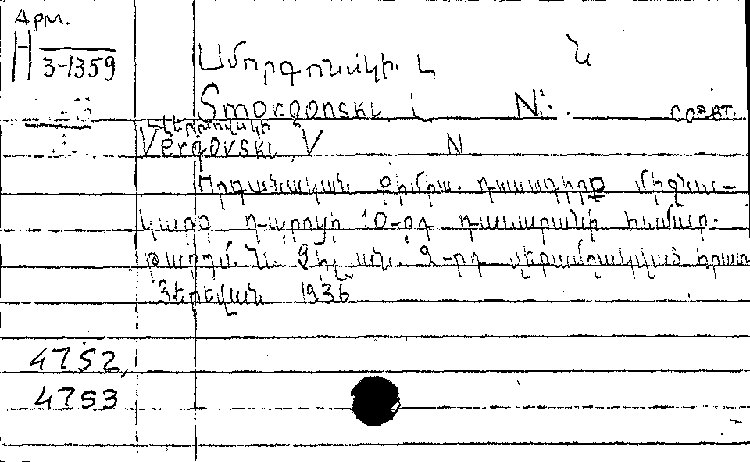 Арм.
H 3-1359
Սմորգոնսկի. Լ Ն
Smorgonski, L N. соавт.
Vergovski, V N
Որգանական քիմիա. դասագիրք միջնա-
կարգ դպրոցի 10-րդ դասարանի համար.
2-րդ վերամշակված հրատ
Յերեվան 1936
4752,
4753